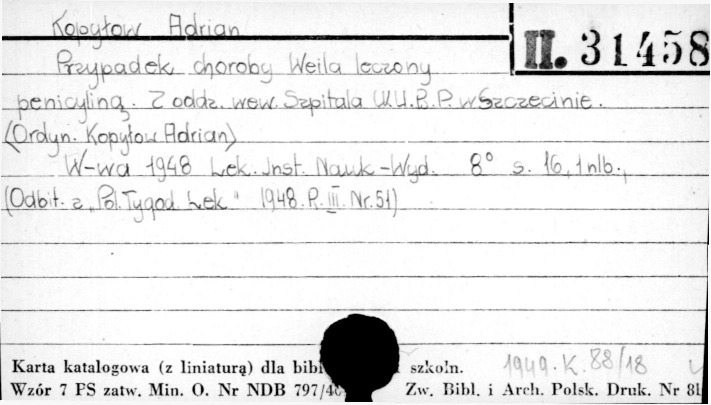 Kopyłow Adrian
II. 31458
Przypadek choroby Weila leczony
penicyliną. Z oddz. wew. Szpitala W.U.B.P. w Szczecinie.
(Ordyn. Kopyłow Adrian)
W-wa 1948 Lek. Inst. Nauk-Wyd. 8° s. 16, 1 nlb.,
(Odbit. z „Pol. Tygod. Lek" 1948. R. III. Nr. 51)
1949. K. 88/18
Karta katalogowa (z liniaturą) dla szkoln.
Wzór 7 PS zatw. Min. O. Nr NDB Zw. Bibl. i Arch. Polsk. Druk. Nr